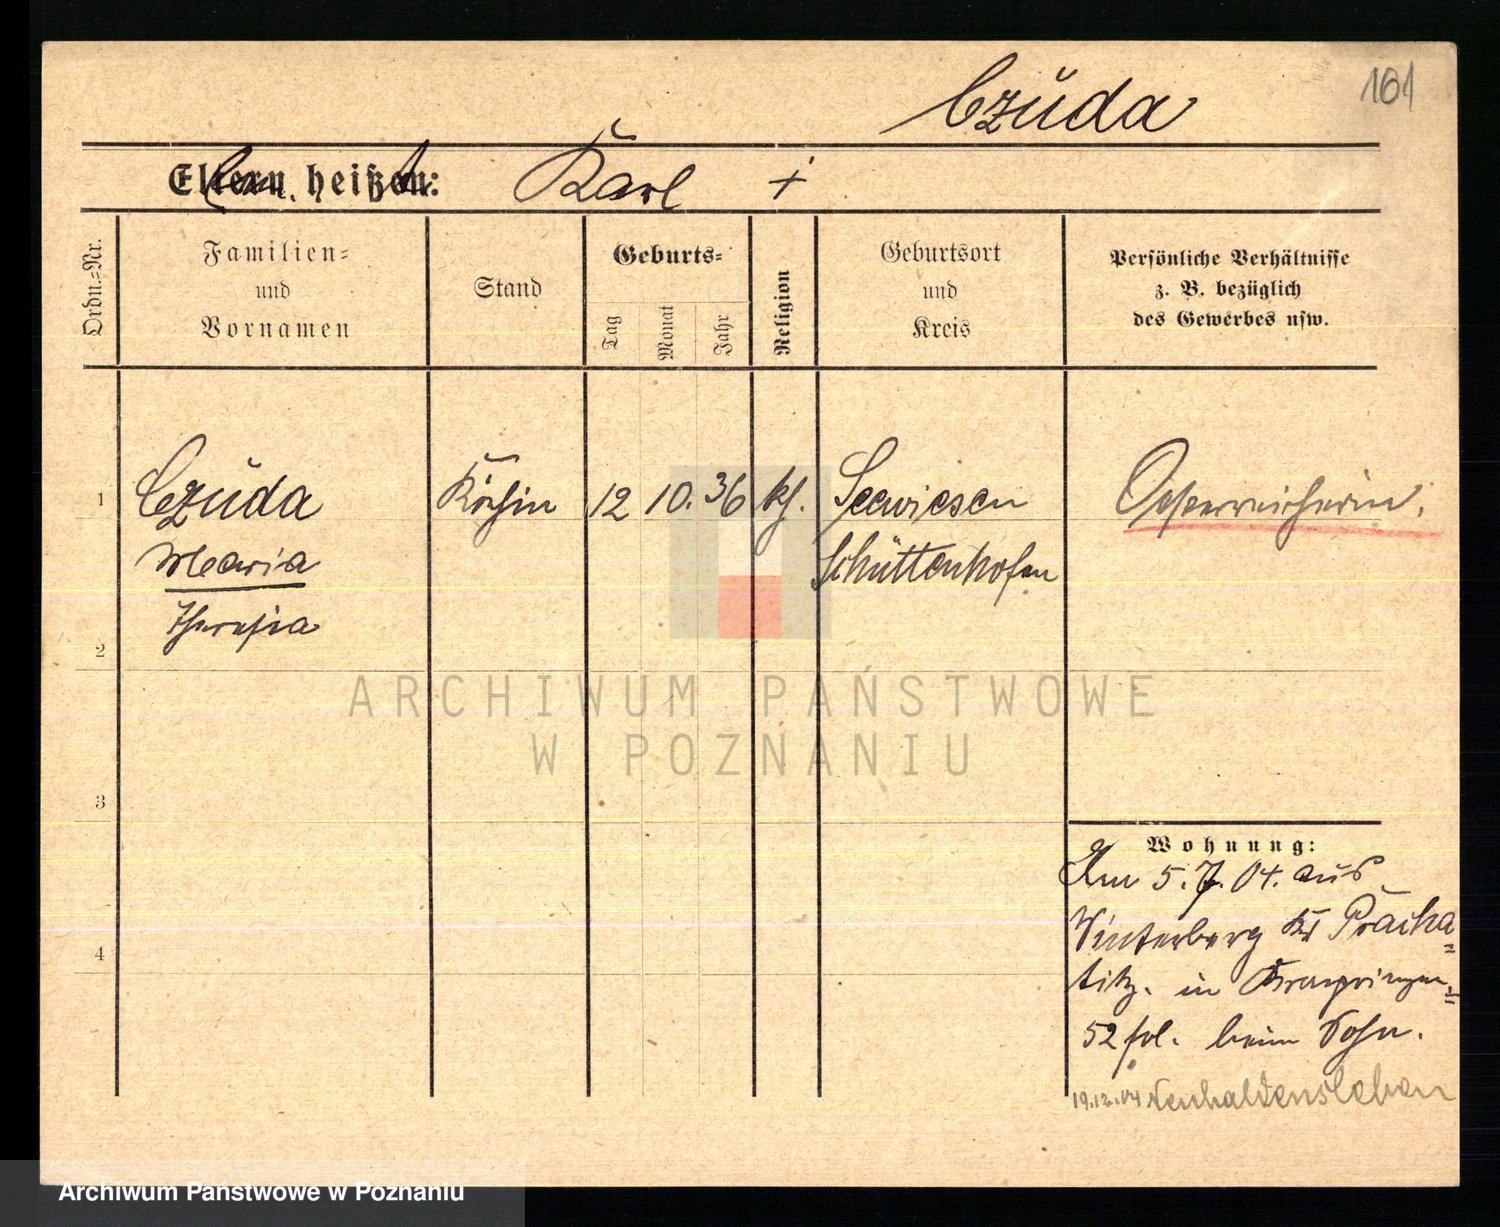 Czŭda
101
Eltern heißen: Karl +
Ordn.=Nr.
Familien=
und
Vornamen
Stand
Geburts=
Tag
Monat
Jahr
Religion
Geburtsort
und
Kreis
Persönliche Verhältnisse
z. B. bezüglich
des Gewerbes usw.
1 Czŭda Köchin 12 10. 36 kh. Seewiesen Oesterreicherin.
Maria Schüttenhofen
Theresia
2
ARCHIWUM PAŃSTWOWE
W POZNANIU
3
Wohnung:
Am 5.7.04. aus
Winterberg Kr Pracha=
4
titz. in
52 fol. beim Sohn.
19.12.04 Neuhaldensleben
Archiwum Państwowe w Poznaniu